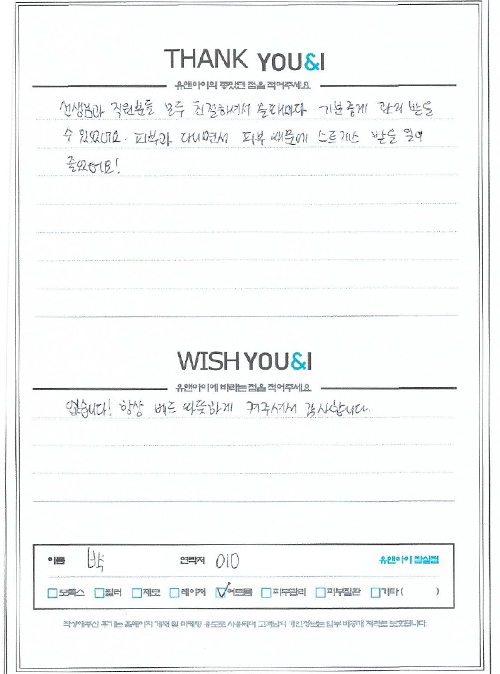 THANK YOU&I
유앤아이의 좋았던 점을 적어주세요.
선생님과 직원분들 모두 친절하셔서 올때마다 기분좋게 관리 받을
수 있었어요. 피부과 다니면서 피부 때문에 스트레스 받을 일이
줄었어요!
WISH YOU&I
유앤아이에 바라는 점을 적어주세요.
없습니다! 항상 베드 따뜻하게 켜주셔서 감사합니다.
이름 백 연락처 010 유앤아이 잠실점
보톡스 필러 제모 레이저 여드름 피부관리 피부질환 기타 ( )
작성해주신 후기는 홈페이지 게재 및 마케팅 용도로 사용되며 고객님의 개인정보는 일부 비공개 처리로 보호됩니다.